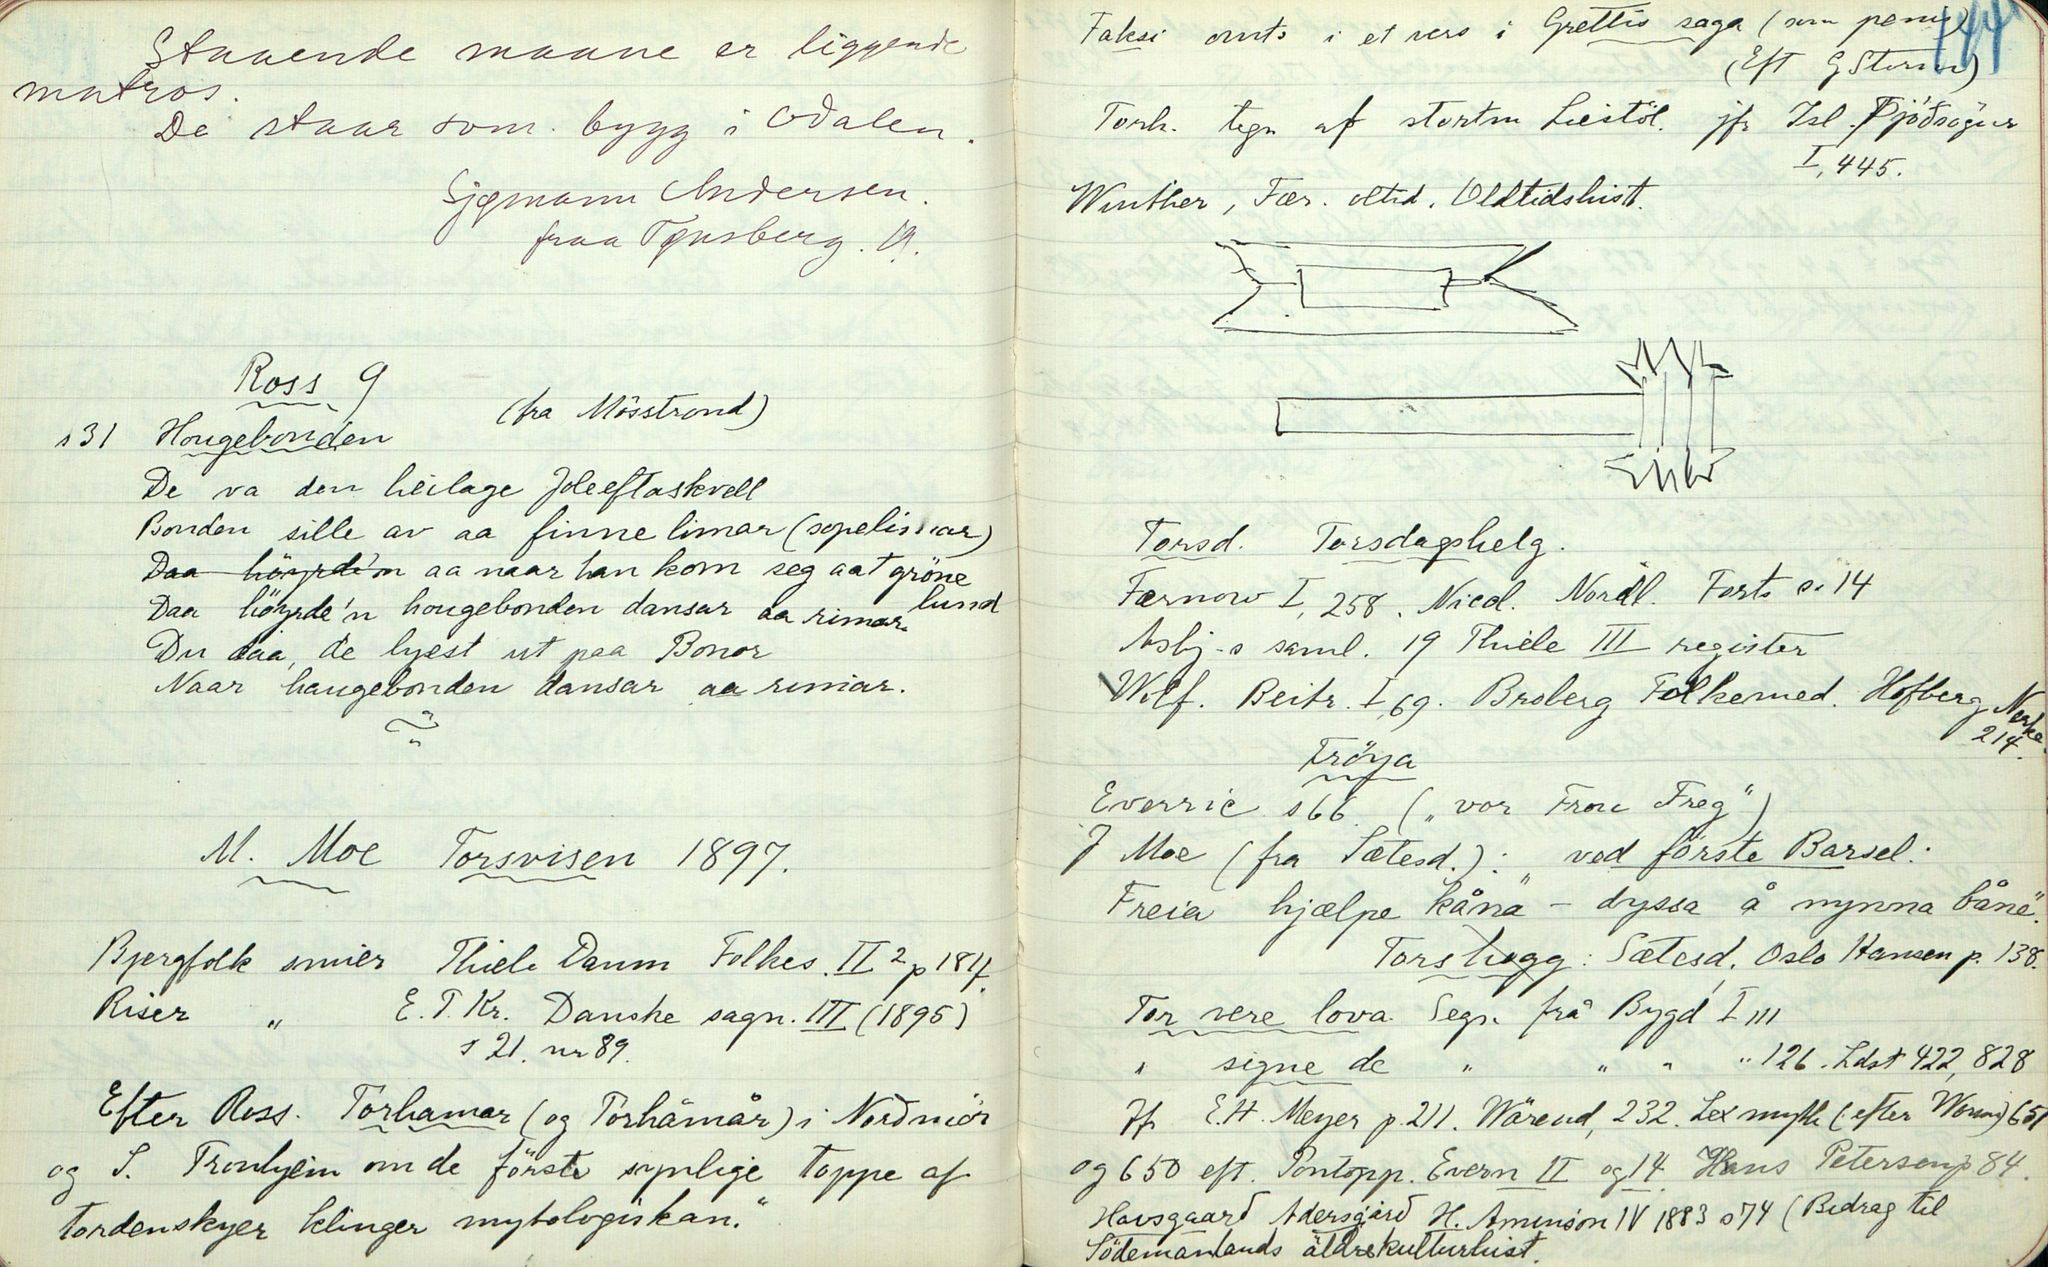 Staaende maane er liggende
matros.
De staar som bygg i Odalen.
Sjømann Andersen.
fraa Tønsberg. 19.
Ross 9
(fra Mösstrond)
s 31 Hougebonden
De va den heilage Joleeftaskvell
Bonden sille av aa finne limar (sopelimar)
Daa höyrde'n aa naar han kom seg aat gröne
lund
Daa höyrde'n hougebonden dansar aa rimar.
Du daa, de lyest ut paa Bonor
Naar haugebonden dansar aa rimar.
M. Moe Torsvisen 1897.
Bjergfolk smier Thiele Danm Folkes. II 2 p 184.
Riser " E. T. Kr. Danske sagn. III (1895)
s 21. nr 89.
Efter Ross. Torhamar (og Torhåmår) i Nordmör
og S. Tronhjeim om de förste synlige toppe af
tordenskyer klinger mytologiskan."
144
Faksi omts i et vers i Grettis saga (som penis)
(Eft G Storm)
Torh. tegn af stortm Leistöl. jfr Isl. Þjóðsögur
I, 445.
Winther, Fær. oltid. Oldtidshist.
Torsd. Torsdagshelg.
Færnow I, 258. Nicol. Nordl. Forts s. 14
Asbj-s saml. 19 Thiele III register
Wolf. Beitr. I, 69. Broberg Folkemed. Hofberg Nerike
214.
Fröya
Everric s 66 („vor Frou Freg")
J Moe (fra Sætesd.): ved förste Barsel:
„Freia hjælpe kåna – dyssa å nynna båne".
Torshogg: Sætesd. Oslo Hansen p. 138.
Tor vere lova. Segn frå Bygd I 111
" signe de " " " " 126. Ldst 422, 828
Jfr E.H. Meyer p. 211. Wärend, 232. Lex myth (efter Worm) 651
og 650 eft. Pontopp. Evern II og 14 Hans Petersen p 84.
Hovsgaard Adersgård H. Aminson IV 1883 s 74 (Bidrag til
Södemanlands äldre kulturhist.